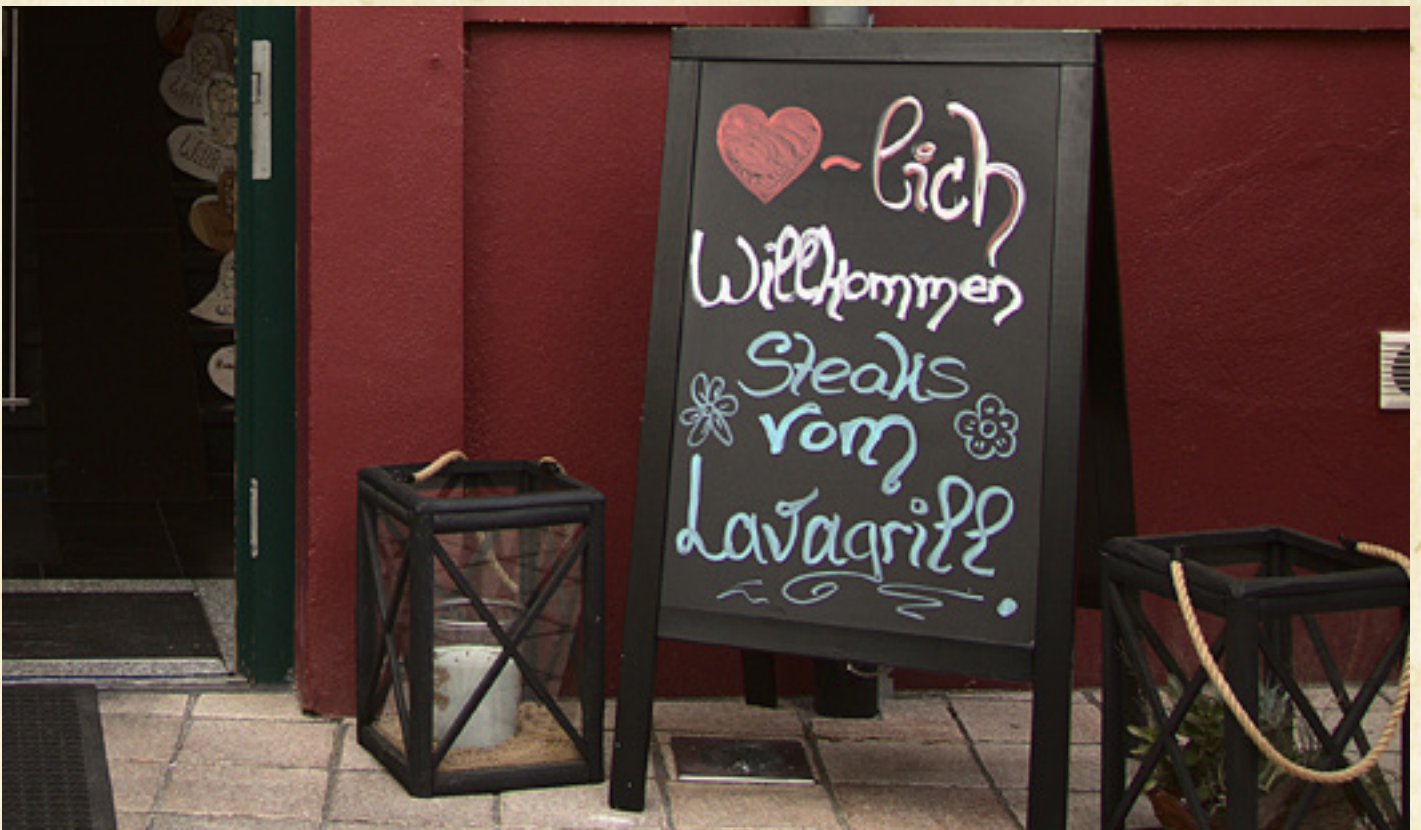 ~lich
Willkommen
Steaks
vom
Lavagrill